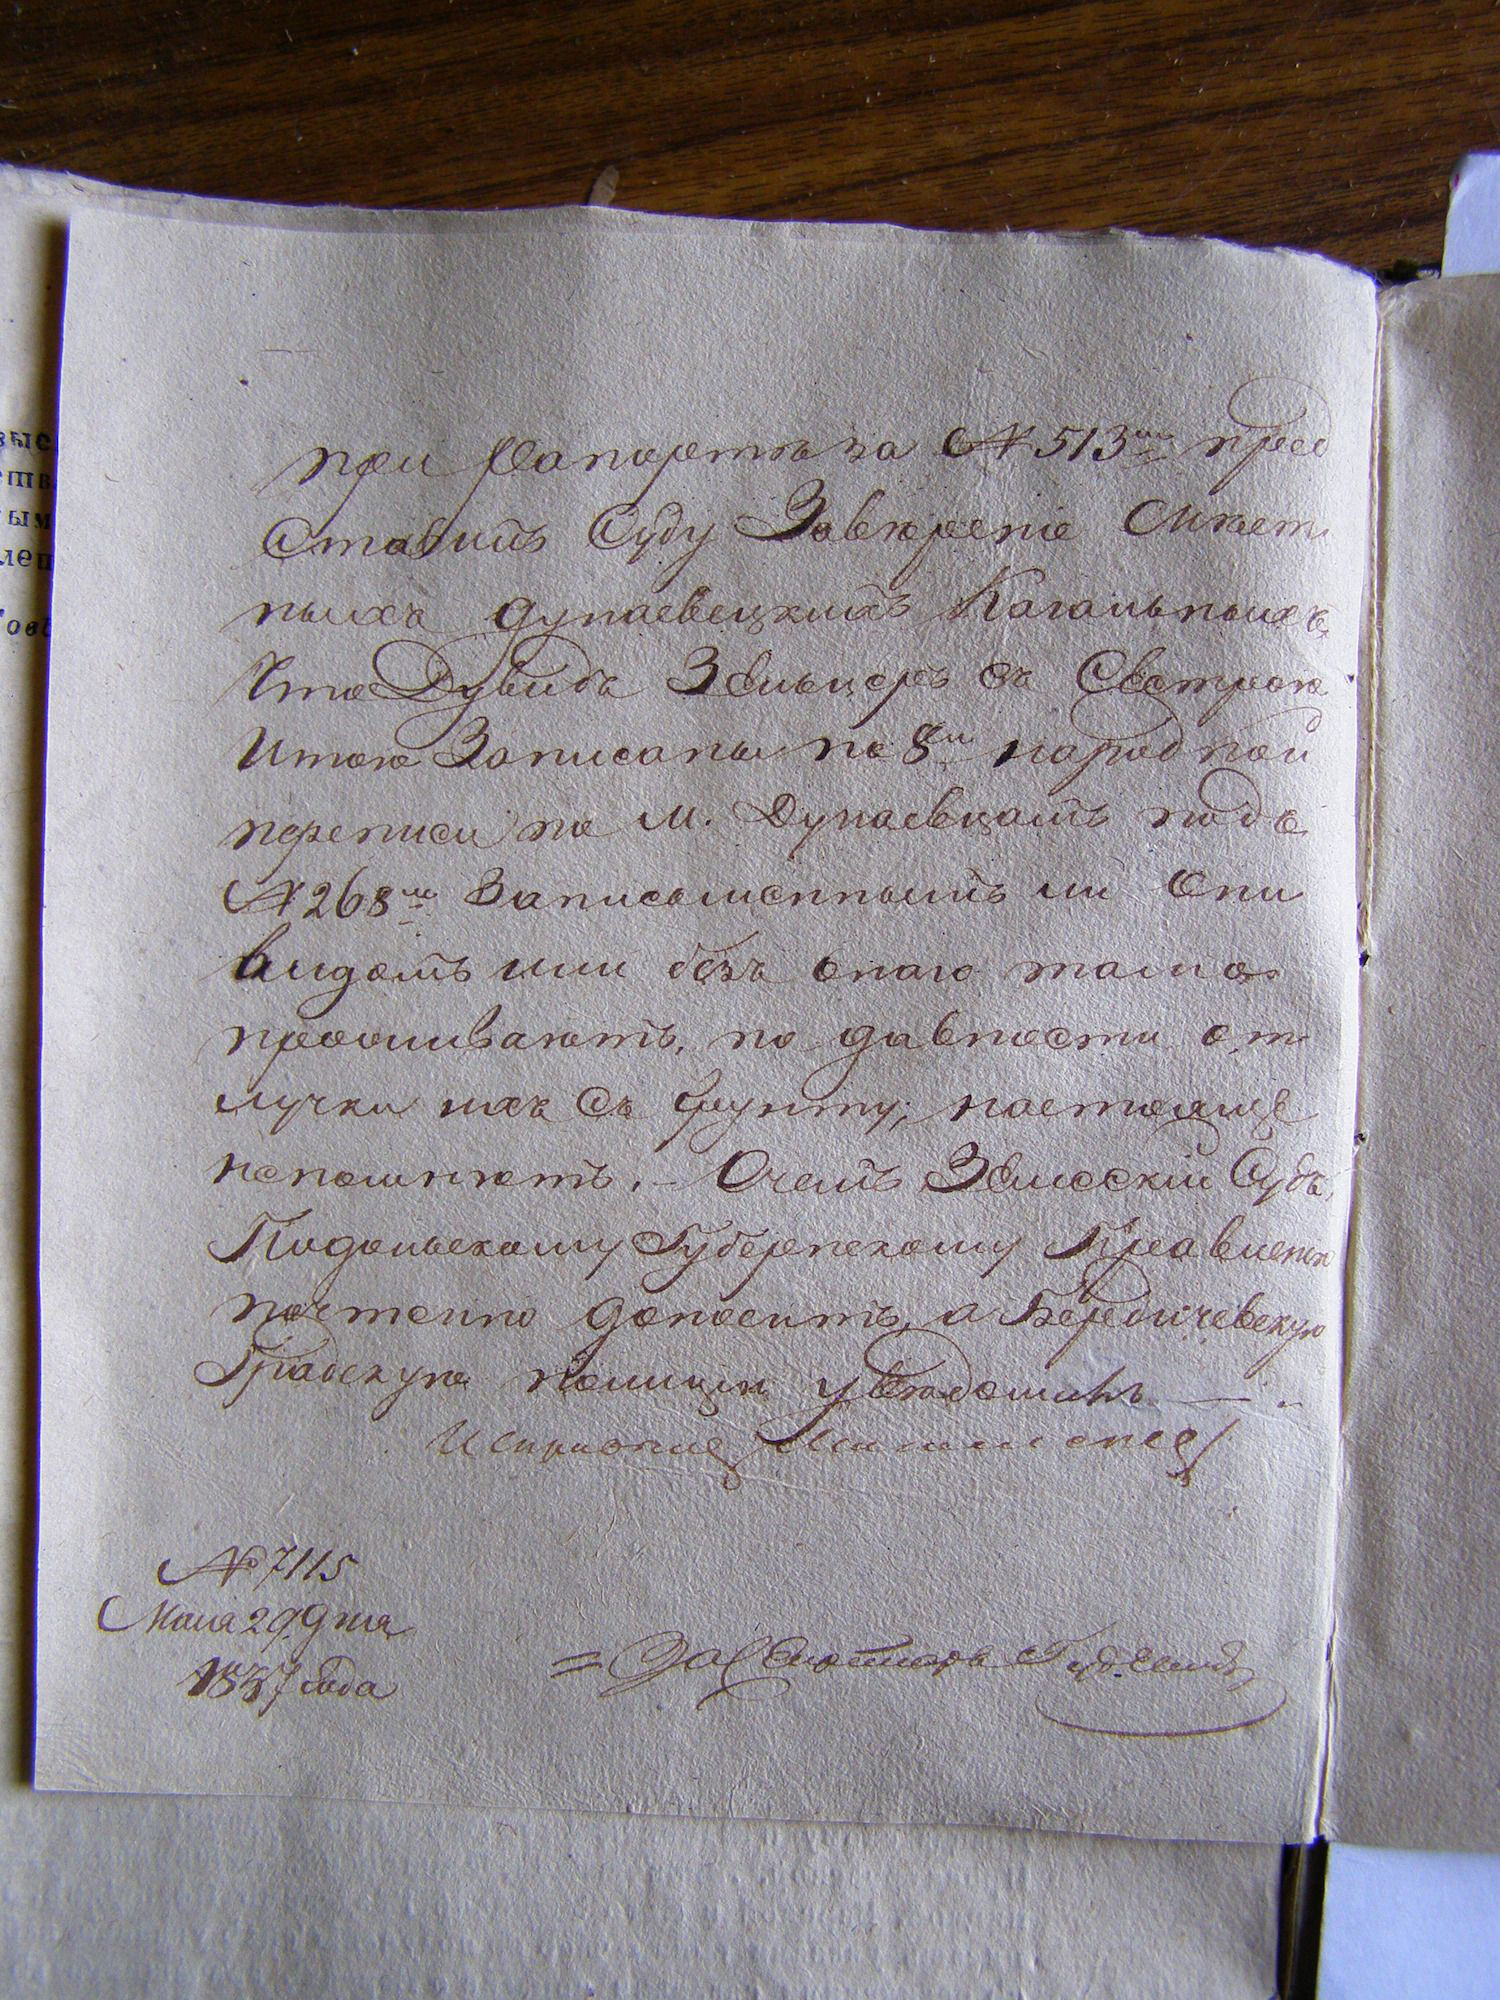 при рапортѣ за № 513м пред
ставилъ Суду Завѣреніе Мѣст
ныхъ дунаевецкихъ Кагальныхъ
Что Дувидъ Зельцеръ съ Сестрою
Итою Записаны по 8й народной
переписи по м. Дунаевцамъ подъ
№ 268м Записьменнымъ ли они
видомъ или безъ онаго тамо
проживаютъ, по давности от
лучки ихъ съ грунту, настояще
непомнютъ. – Очемъ Земскій Судъ,
Подольскому Губернскому Правленію
почтенно доноситъ, а Бердичевскую
Градскую полицію увѣдомилъ —
Исправникъ
№ 7115
Мая 29 Дня
1837 года
= За Секретаря
выс
ств
ым
лен